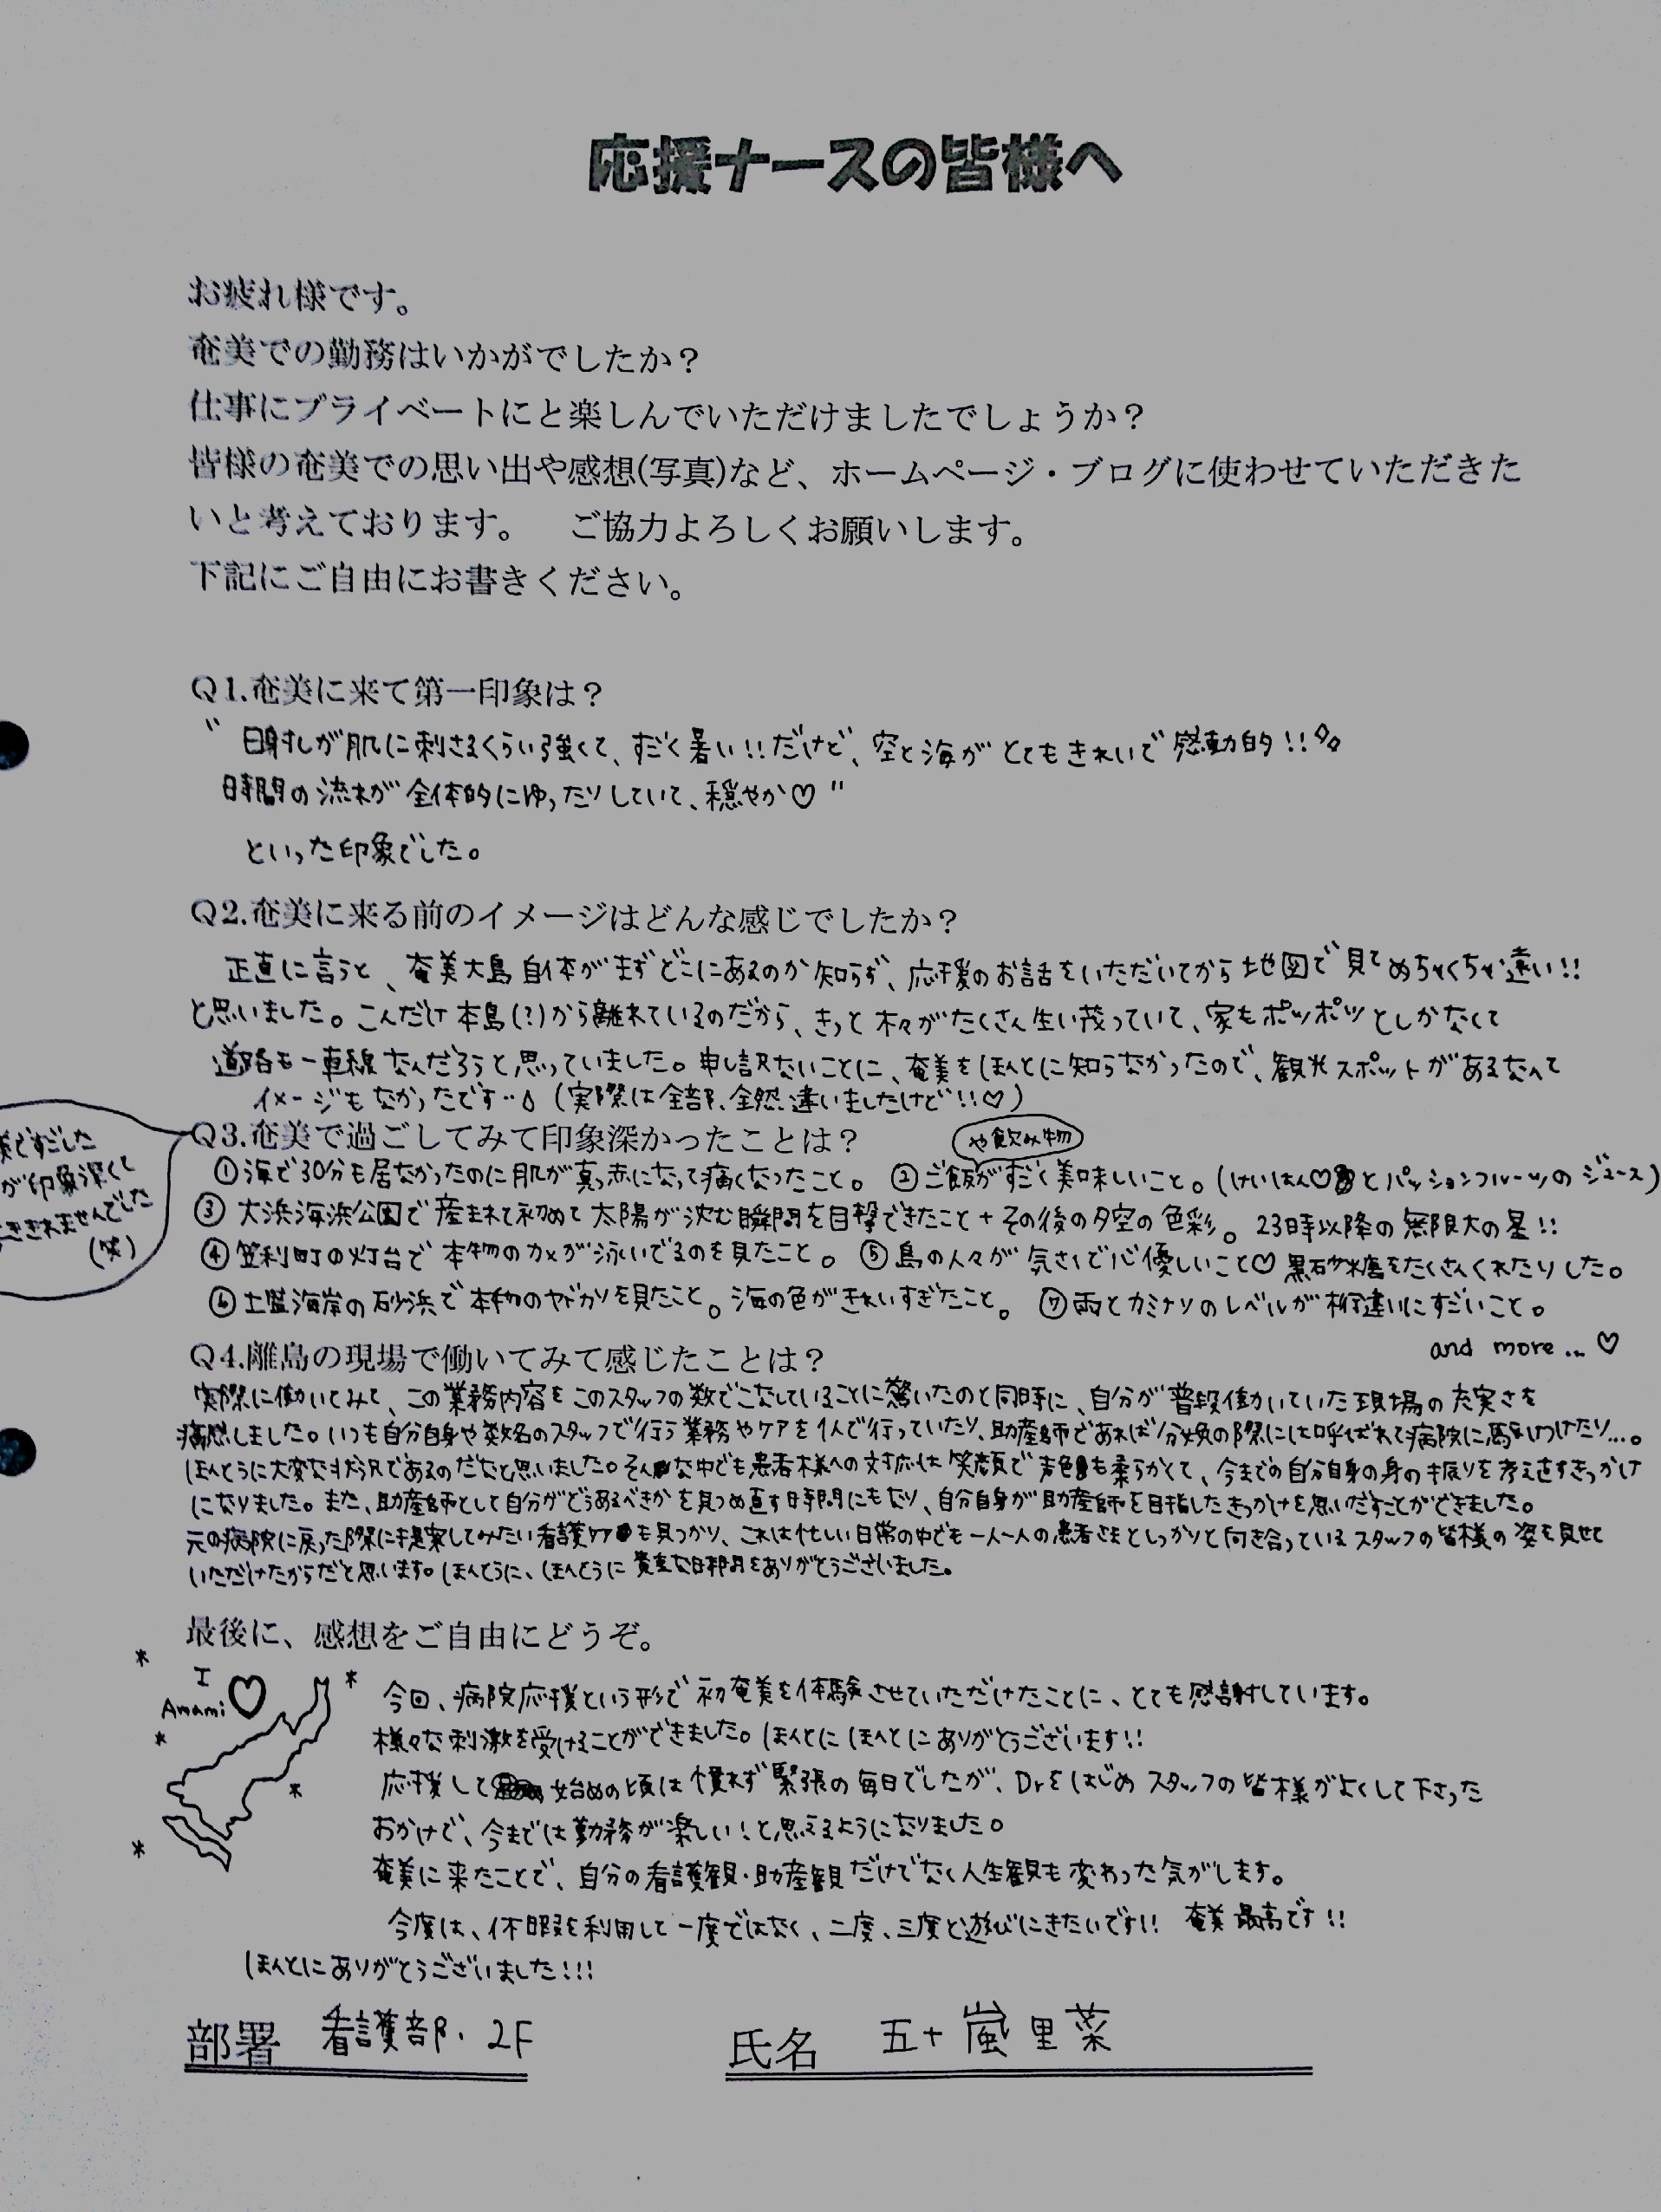 応援ナースの皆様へ
お疲れ様です。
奄美での勤務はいかがでしたか？
仕事にプライベートにと楽しんでいただけましたでしょうか？
皆様の奄美での思い出や感想(写真)など、ホームページ・ブログに使わせていただきた
いと考えております。　ご協力よろしくお願いします。
下記にご自由にお書きください。
Q1.奄美に来て第一印象は？
〝日射しが肌に刺さるくらい強くて、すごく暑い!!だけど、空と海がとてもきれいで感動的!!
時間の流れが全体的にゆったりしていて、穏やか♡〟
といった印象でした。
Q2.奄美に来る前のイメージはどんな感じでしたか？
正直に言うと、奄美大島自体がまずどこにあるのか知らず、応援のお話をいただいてから地図で見てめちゃくちゃ遠い!!
と思いました。こんだけ本島(?)から離れているのだから、きっと木々がたくさん生い茂っていて、家もポツポツとしかなくて
道路も一車線なんだろうと思っていました。申し訳ないことに、奄美をほんとに知らなかったので、観光スポットがあるなんて
イメージもなかったです‥(実際は全部、全然違いましたけど!!♡)
Q3.奄美で過ごしてみて印象深かったことは？
や飲み物
①海で30分も居なかったのに肌が真っ赤になって痛くなったこと。 ②ご飯がすごく美味しいこと。(けいはん♡とパッションフルーツのジュース)
③大浜海浜公園で産まれて初めて太陽が沈む瞬間を目撃できたこと+その後の夕空の色彩。23時以降の無限大の星!!
④笠利町の灯台で本物のカメが泳いでるのを見たこと。 ⑤島の人々が気さくで心優しいこと♡黒砂糖をたくさんくれたりした。
⑥土盛海岸の砂浜で本物のヤドカリを見たこと。海の色がきれいすぎたこと。 ⑦雨とカミナリのレベルが桁違いにすごいこと。
and more... ♡
すごした
が印象深くて
きれませんでした
(笑)
Q4.離島の現場で働いてみて感じたことは？
実際に働いてみて、この業務内容をこのスタッフの数でこなしていることに驚いたのと同時に、自分が普段働いていた現場の充実さを
痛感しました。いつも自分自身や数名のスタッフで行う業務やケアを1人で行っていたり、助産師であれば分娩の際には呼ばれて病院に駆けつけたり…。
ほんとうに大変な状況であるのだなと思いました。そんな中でも患者様への対応は笑顔で声色も柔らかくて、今までの自分自身の身の振りを考え直すきっかけ
になりました。また、助産師として自分がどうあるべきかを見つめ直す時間にもなり、自分自身が助産師を目指したきっかけを思いだすことができました。
元の病院に戻った際に提案してみたい看護ケアも見つかり、これは忙しい日常の中でも一人一人の患者さまとしっかりと向き合っているスタッフの皆様の姿を見せて
いただけたからだと思います。ほんとうに、ほんとうに貴重な時間をありがとうございました。
最後に、感想をご自由にどうぞ。
I
Amami ♡
今回、病院応援という形で初奄美を体験させていただけたことに、とても感謝しています。
様々な刺激を受けることができました。ほんとにほんとにありがとうございます!!
応援して始めの頃は慣れず緊張の毎日でしたが、Drをはじめスタッフの皆様がよくして下さった
おかげで、今までは勤務が楽しい!と思えるようになりました。
奄美に来たことで、自分の看護観・助産観だけでなく人生観も変わった気がします。
今度は、休暇を利用して一度ではなく、二度、三度と遊びにきたいです!! 奄美最高です!!
ほんとにありがとうございました!!!
部署　看護部・2F　　氏名　五十嵐里菜